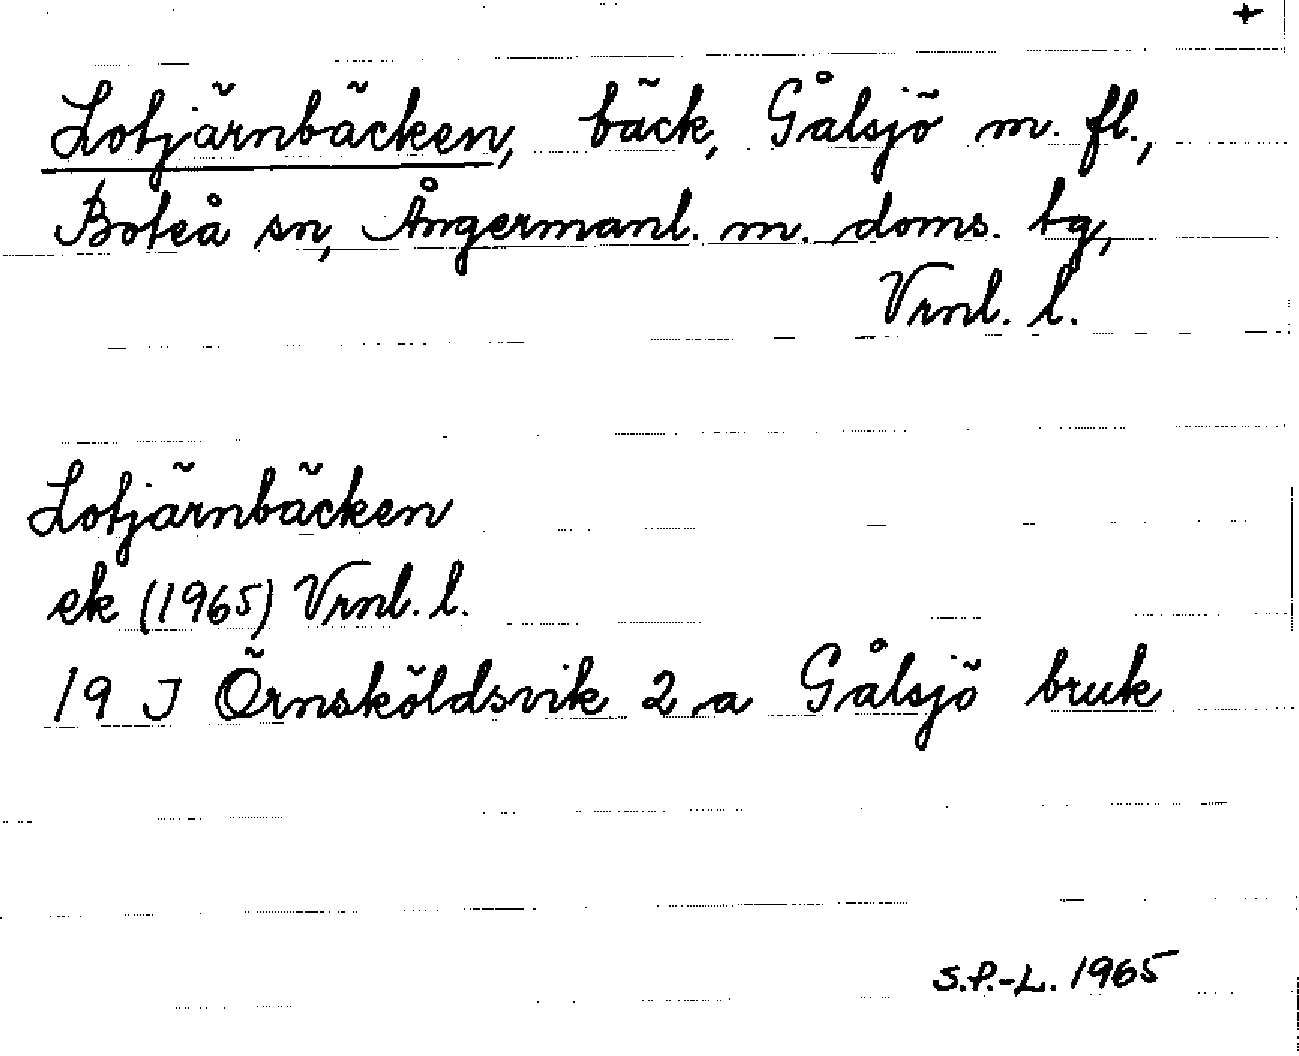 +
Lotjärnbäcken, bäck, Gålsjö m. fl.,
Boteå sn, Ångermanl. m. doms. tg,
Vrnl. l.
Lotjärnbäcken
ek (1965) Vrnl. l.
19 J Örnsköldsvik 2 a Gålsjö bruk
S.P.-L. 1965